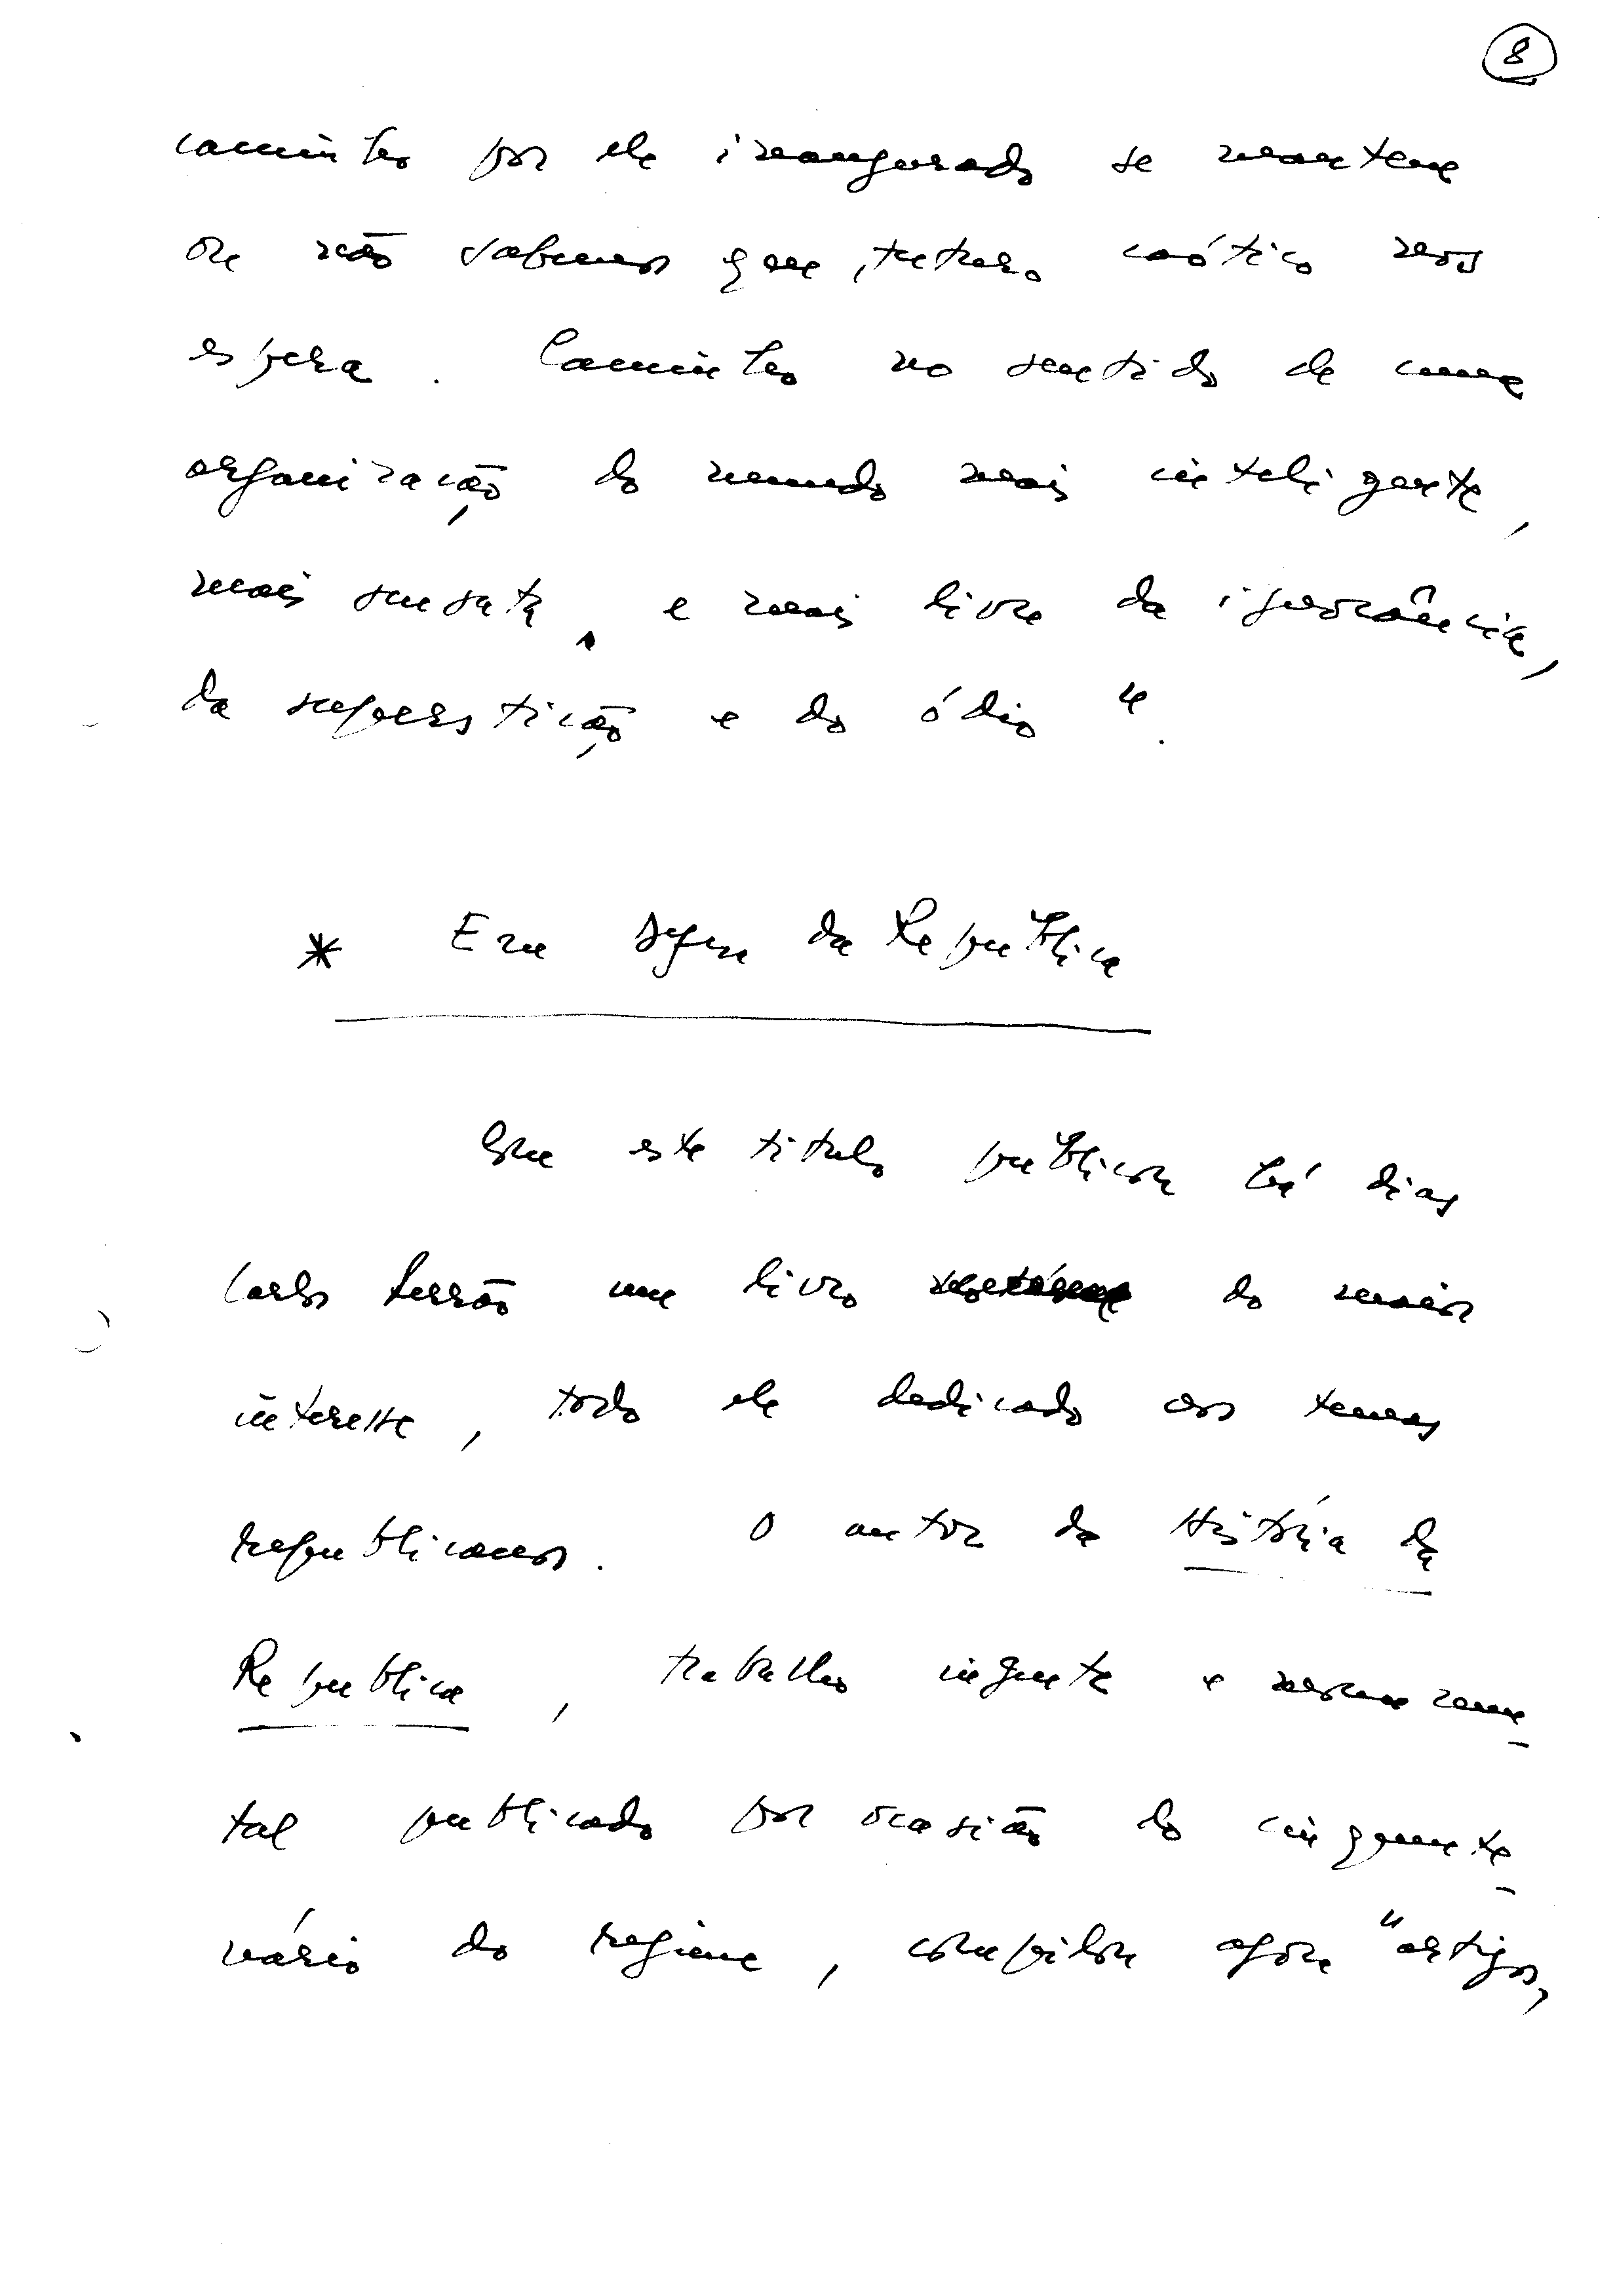 8
caminho por ele inaugurado se mantem
ou não sabemos que futuro caótico nos
espera. Caminho no sentido de uma
organização do mundo mais inteligente,
mais sensata, e mais livre da ignorância,
da superstição e do ódio".
* Em defesa da República
Com este titulo publicou há dias
Carlos Ferrão um livro do maior
interesse, todo ele dedicado aos temas
republicanos. O autor da História da
República, trabalho ingente e monumen-
tal publicado por ocasião do cinquente-
nário do regime, compilou agora "artigos,